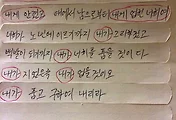 내게 안겼고 태에서 남으로부터 내게 업힌 너희여
너희가 노년에 이르기까지 내가 그리하겠고
백발이 되기까지 내가 너희를 품을 것이다
내가 지었은즉 내가 업을 것이요
내가 품고 구하여 내리라